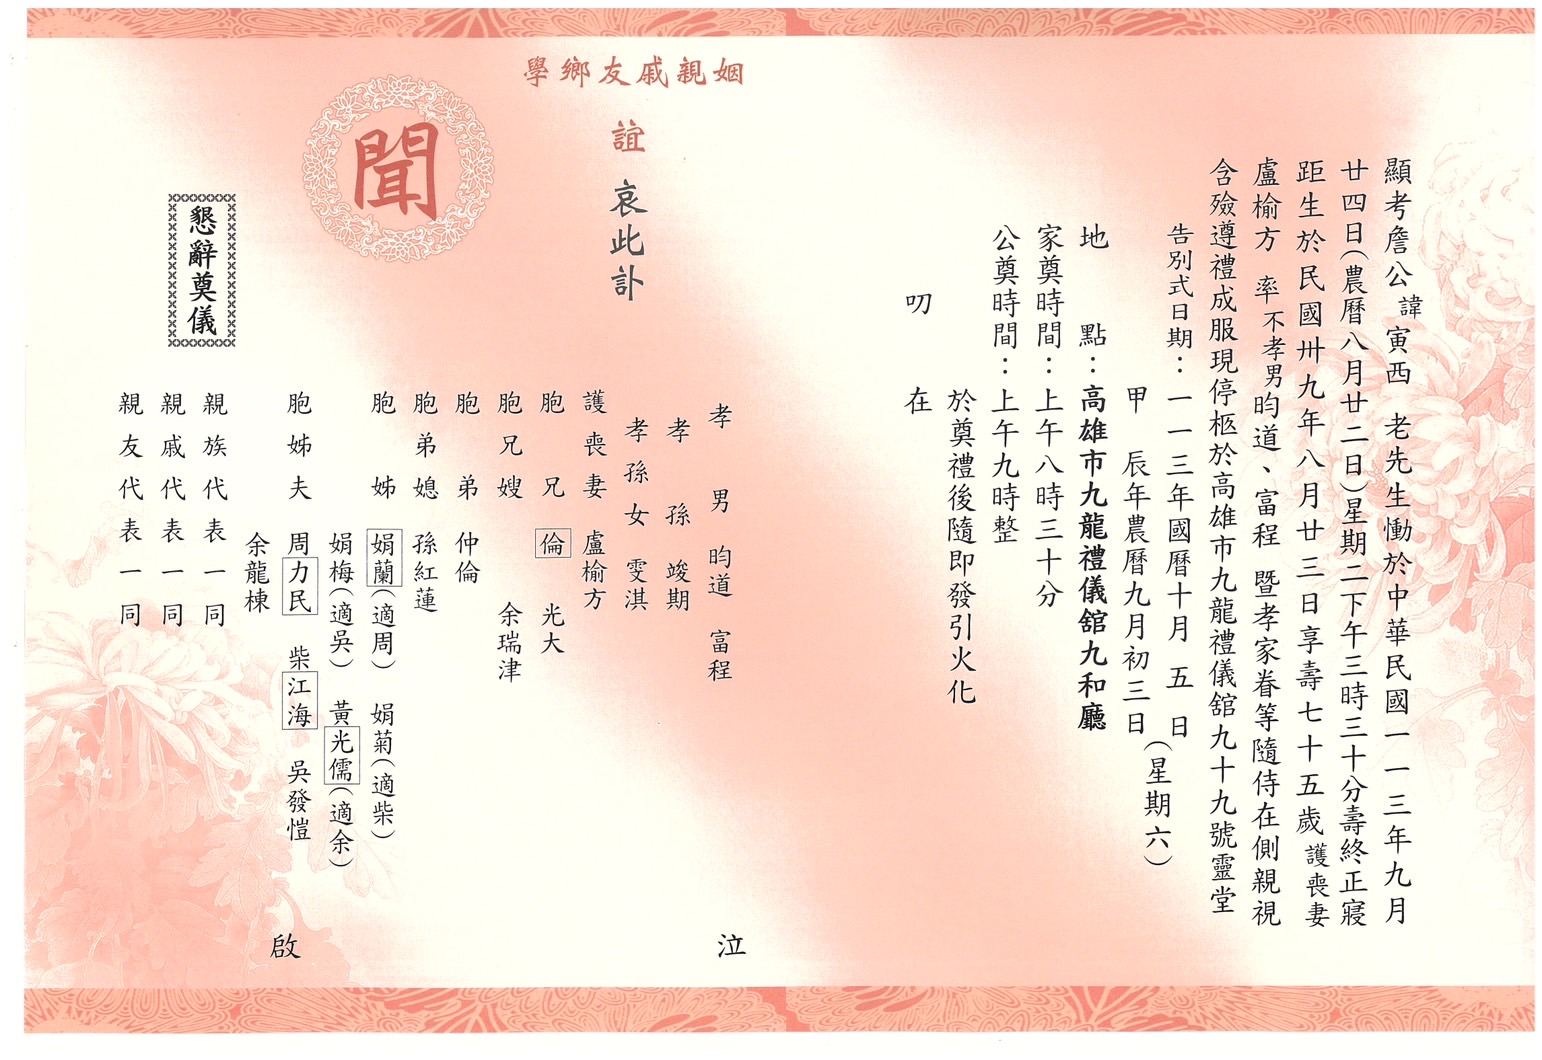 顯考詹公諱寅西 老先生慟於中華民國一一三年九月
廿四日(農曆八月廿二日)星期二下午三時三十分壽終正寢
距生於民國卅九年八月廿三日享壽七十五歲護喪妻
盧榆方 率不孝男昀道、富程 暨孝家眷等隨侍在側親視
含殮遵禮成服現停柩於高雄市九龍禮儀舘九十九號靈堂
告別式日期：一一三年國曆十月 五 日
甲 辰年農曆九月初三日
(星期六)
地 點：高雄市九龍禮儀舘九和廳
家奠時間：上午八時三十分
公奠時間：上午九時整
於奠禮後隨即發引火化
叨 在
學鄉友戚親姻
誼 哀此訃
聞
孝 男 昀道 富程
泣
孝 孫 竣期
孝孫女 雯淇
護喪妻 盧榆方
胞 兄 倫 光大
胞兄嫂 余瑞津
胞 弟 仲倫
胞弟媳 孫紅蓮
胞 姊 娟蘭(適周) 娟菊(適柴)
娟梅(適吳) 黃光儒(適余)
胞姊夫 周力民 柴江海 吳發愷
余龍棟
啟
親族代表一同
親戚代表一同
親友代表一同
懇辭奠儀